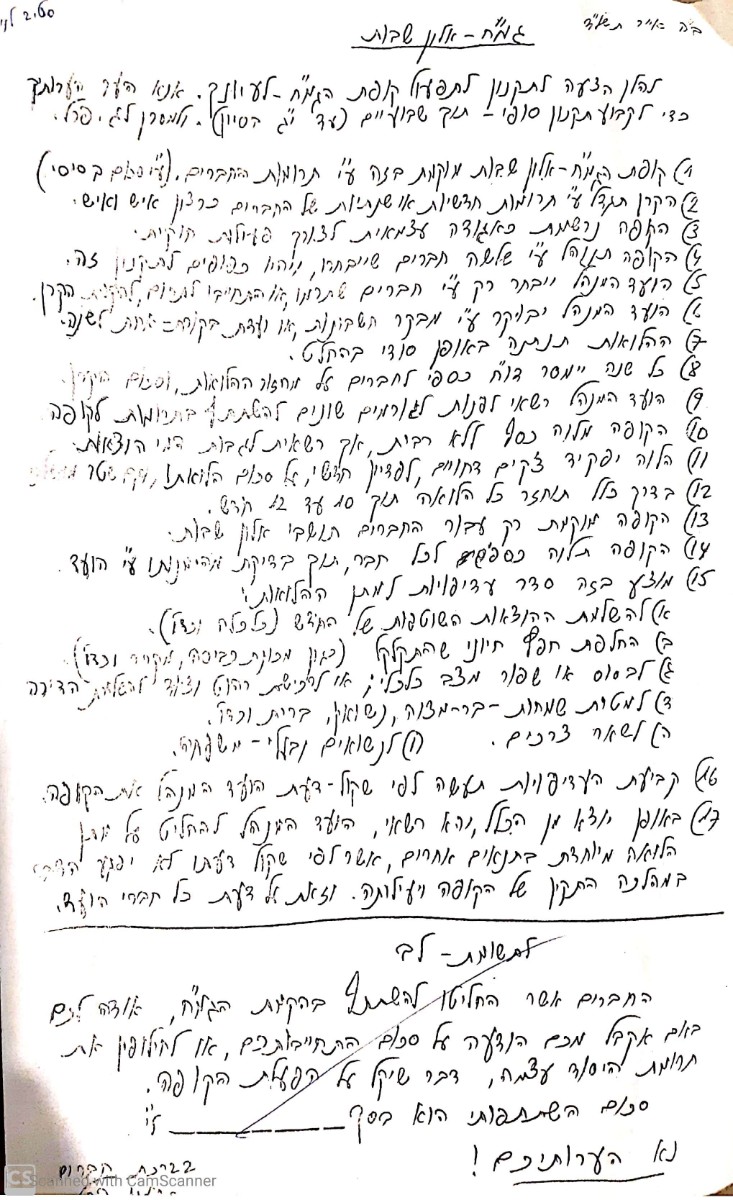 ב"ה אייר תשל"ד
גמ"ח - אלון שבות
להלן הצעה לתקנון לתפעול קופת הגמ"ח - לעיונך. אנא הער הערותיך
כדי לקבוע תקנון סופי - תוך שבועיים (עד י"ג בסיון).
1) קופת הגמ"ח - אלון שבות מוקמת בזה ע"י תרומות החברים. (ע"י סכום בסיסי)
2) הקרן תגדל ע"י תרומות חדשיות או שנתיות של החברים כרצון איש ואיש.
3) הקופה נרשמת כאגודה עצמאית לצורך פעילות חוקית.
4) הקופה תנוהל ע"י שלשה חברים שייבחרו, ויהיו כפופים לתקנון זה.
5) הועד המנהל ייבחר רק ע"י חברים שתרמו, או התחייבו לתרום, להקמת הקרן.
6) הועד המנהל יבוקר ע"י מבקר חשבונות, או ועדת בקורת - אחת לשנה.
7) ההלואות תנתנה באופן סודי בהחלט.
8) כל שנה יימסר דו"ח כספי לחברים על מחזור ההלואות, וסכום הקרן.
9) הועד המנהל רשאי לפנות לגורמים שונים להשתתף בתרומות לקופה
10) הקופה מלוה כסף ללא רבית, אך רשאית לגבות דמי הוצאות.
11) הלוה יפקיד צ'קים דחויים, לפדיון חדשי, על סכום הלואתו, שטר
12) בדרך כלל תוחזר כל הלואה תוך 10 עד 12 חודש.
13) הקופה מוקמת רק עבור החברים תושבי אלון שבות.
14) הקופה תלוה כספים לכל חבר, תוך בדיקת מהימנותו ע"י הועד.
15) מוצע בזה סדר עדיפויות למתן ההלואות:
א) להשלמת ההוצאות השוטפות של החודש (כלכלה וכדו').
ב) החלפת חפץ חיוני שהתקלקל (כגון מכונת כביסה, מקרר וכדו').
ג) לבסוס או שפור מצב כלכלי; או לרכישת רהוט וציוד להשלמת הדירה
ד) למטרות שמחות - בר-מצוה, נשואין, ברית וכדו'.
ה) לשאר צרכים. ו) לנשואים ובעלי - משפחה.
16) קביעת העדיפויות תעשה לפי שקול-דעת הועד המנהל את הקופה.
17) באופן יוצא מן הכלל, יהא רשאי, הועד המנהל להחליט על מתן
הלואה מיוחדת בתנאים אחרים, אשר לפי שקול דעתו לא יפגע הדבר
במהלכה התקין של הקופה ויעילותה. וזאת על דעת כל חברי הועד.
לתשומת - לב
החברים אשר החליטו להשתתף בהקמת הגמ"ח, אודה לכם
באם אקבל מכם הודעה על סכום התחייבותכם, או לחילופין את
תרומת היסוד עצמה, דבר שיקל על הפעלת הקופה.
סכום השתתפותי הוא בסך ______ ל"י
נא הערותיכם!
בברכת חברים
CS Scanned with CamScanner